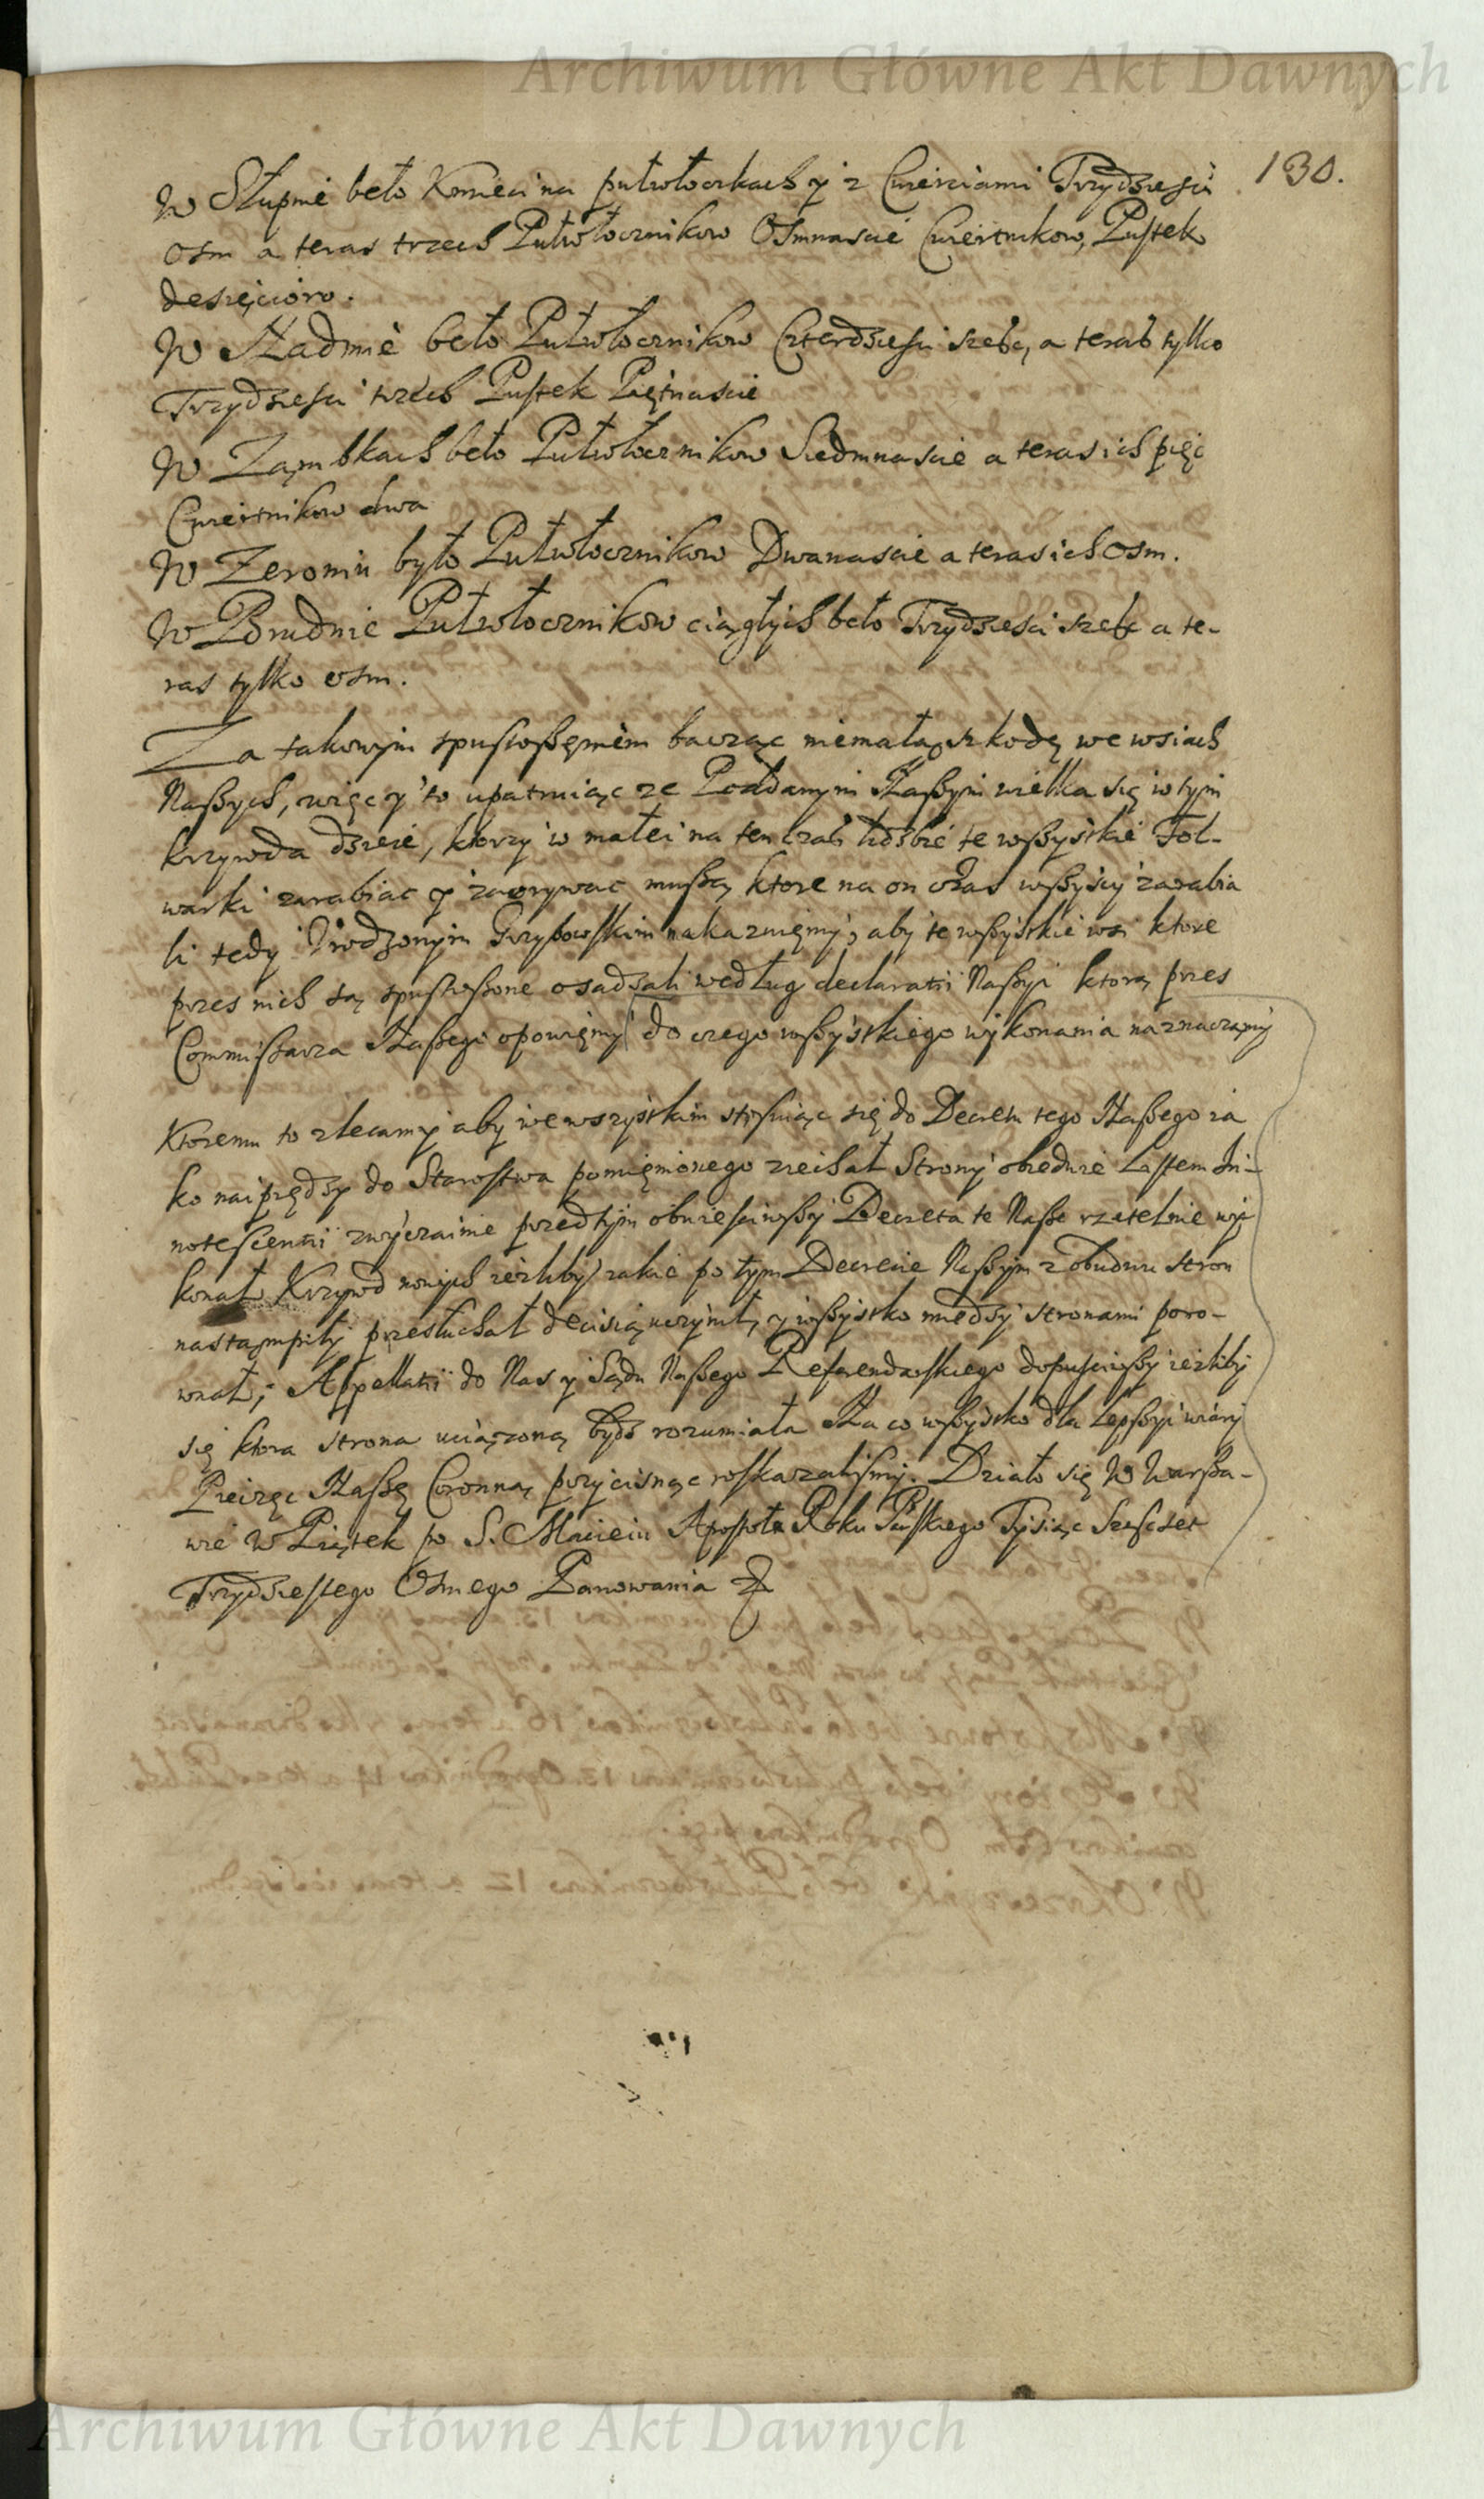 Archiwum Główne Akt Dawnych
130.
W Słupnie beło Kmieci na pułwłoczkach y z Cwierciami Trzydziesci
osm a teras trzech Pułwłocznikow Osmnascie Cwiertnikow, Pustek
dziesięcioro.
W Nadmie beło Pułwłocznikow Czterdziesci szesc, a teras tylko
Trzydziesci trzech Pustek Piętnascie
W Ząmbkach beło Pułwłocznikow Siedmnascie a teras ich pięc
Cwiertnikow dwa
W Zeroniu było Pułwłocznikow Dwanascie a teras ich osm.
W Brudnie Pułwłocznikow ciągłych beło Trzydziesci szesc a te-
ras tylko osm.
Za takowym spustoszęniem bacząc niemałą szkodę we wsiach
Naszych, więc y to upatruiąc ze Poddanym Naszym wielka się w tym
krzywda dzieie, ktorzy w małei na ten czas liczbie te wszystkie Fol-
warki zarabiac y zaorywac muszą, ktore na on czas wszyscy zarabia
li tedy Urodzonym Grzybowskim nakazuięmy, aby te wszystkie wsi ktore
przes nich są spustoszone osadzali według declaratii Naszyi ktorą przes
Commissarza Naszego opowięmy do czego wszystkiego wykonania naznaczamy
Ktoremu to zlecamy aby we wszystkim stosuiąc się do Decretu tego Naszego ia
ko naiprędzy do Starostwa pomięnionego ziechał Strony obiedwie Listem In-
notescentii zwyczainie przed tym obwiesciwszy Decreta te Nasze rzetelnie wy
konał Krzywd nowych iezliby iakie po tym Decrecie Naszym z obudwu stron
nastąmpiły przesłuchał decisią uczynił, y wszystko między stronami poro-
wnał, Appellatii do Nas y Sądu Naszego Referendarskiego dopusciwszy iezliby
się ktora strona uciążoną bydz rozumiała Na co wszystko dla Lepszyi wiary
Pieczęc Naszę Coronną przycisnąc roskazalismy. Działo się W Warsza-
wie W Piątek po S. Macieiu Apostole Roku Pańskiego Tysiąc Szescset
Trzydziestego Osmego Panowania
Archiwum Główne Akt Dawnych